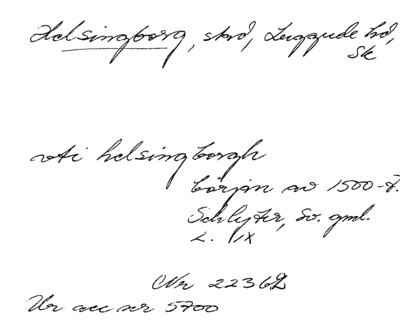 Helsingborg, stad, Luggude hd,
Sk
uti helsingborgh
början av 1500-t.
Schlyter, Sv. gml.
L. IX
Nr 22362
Ur acc nr 5700